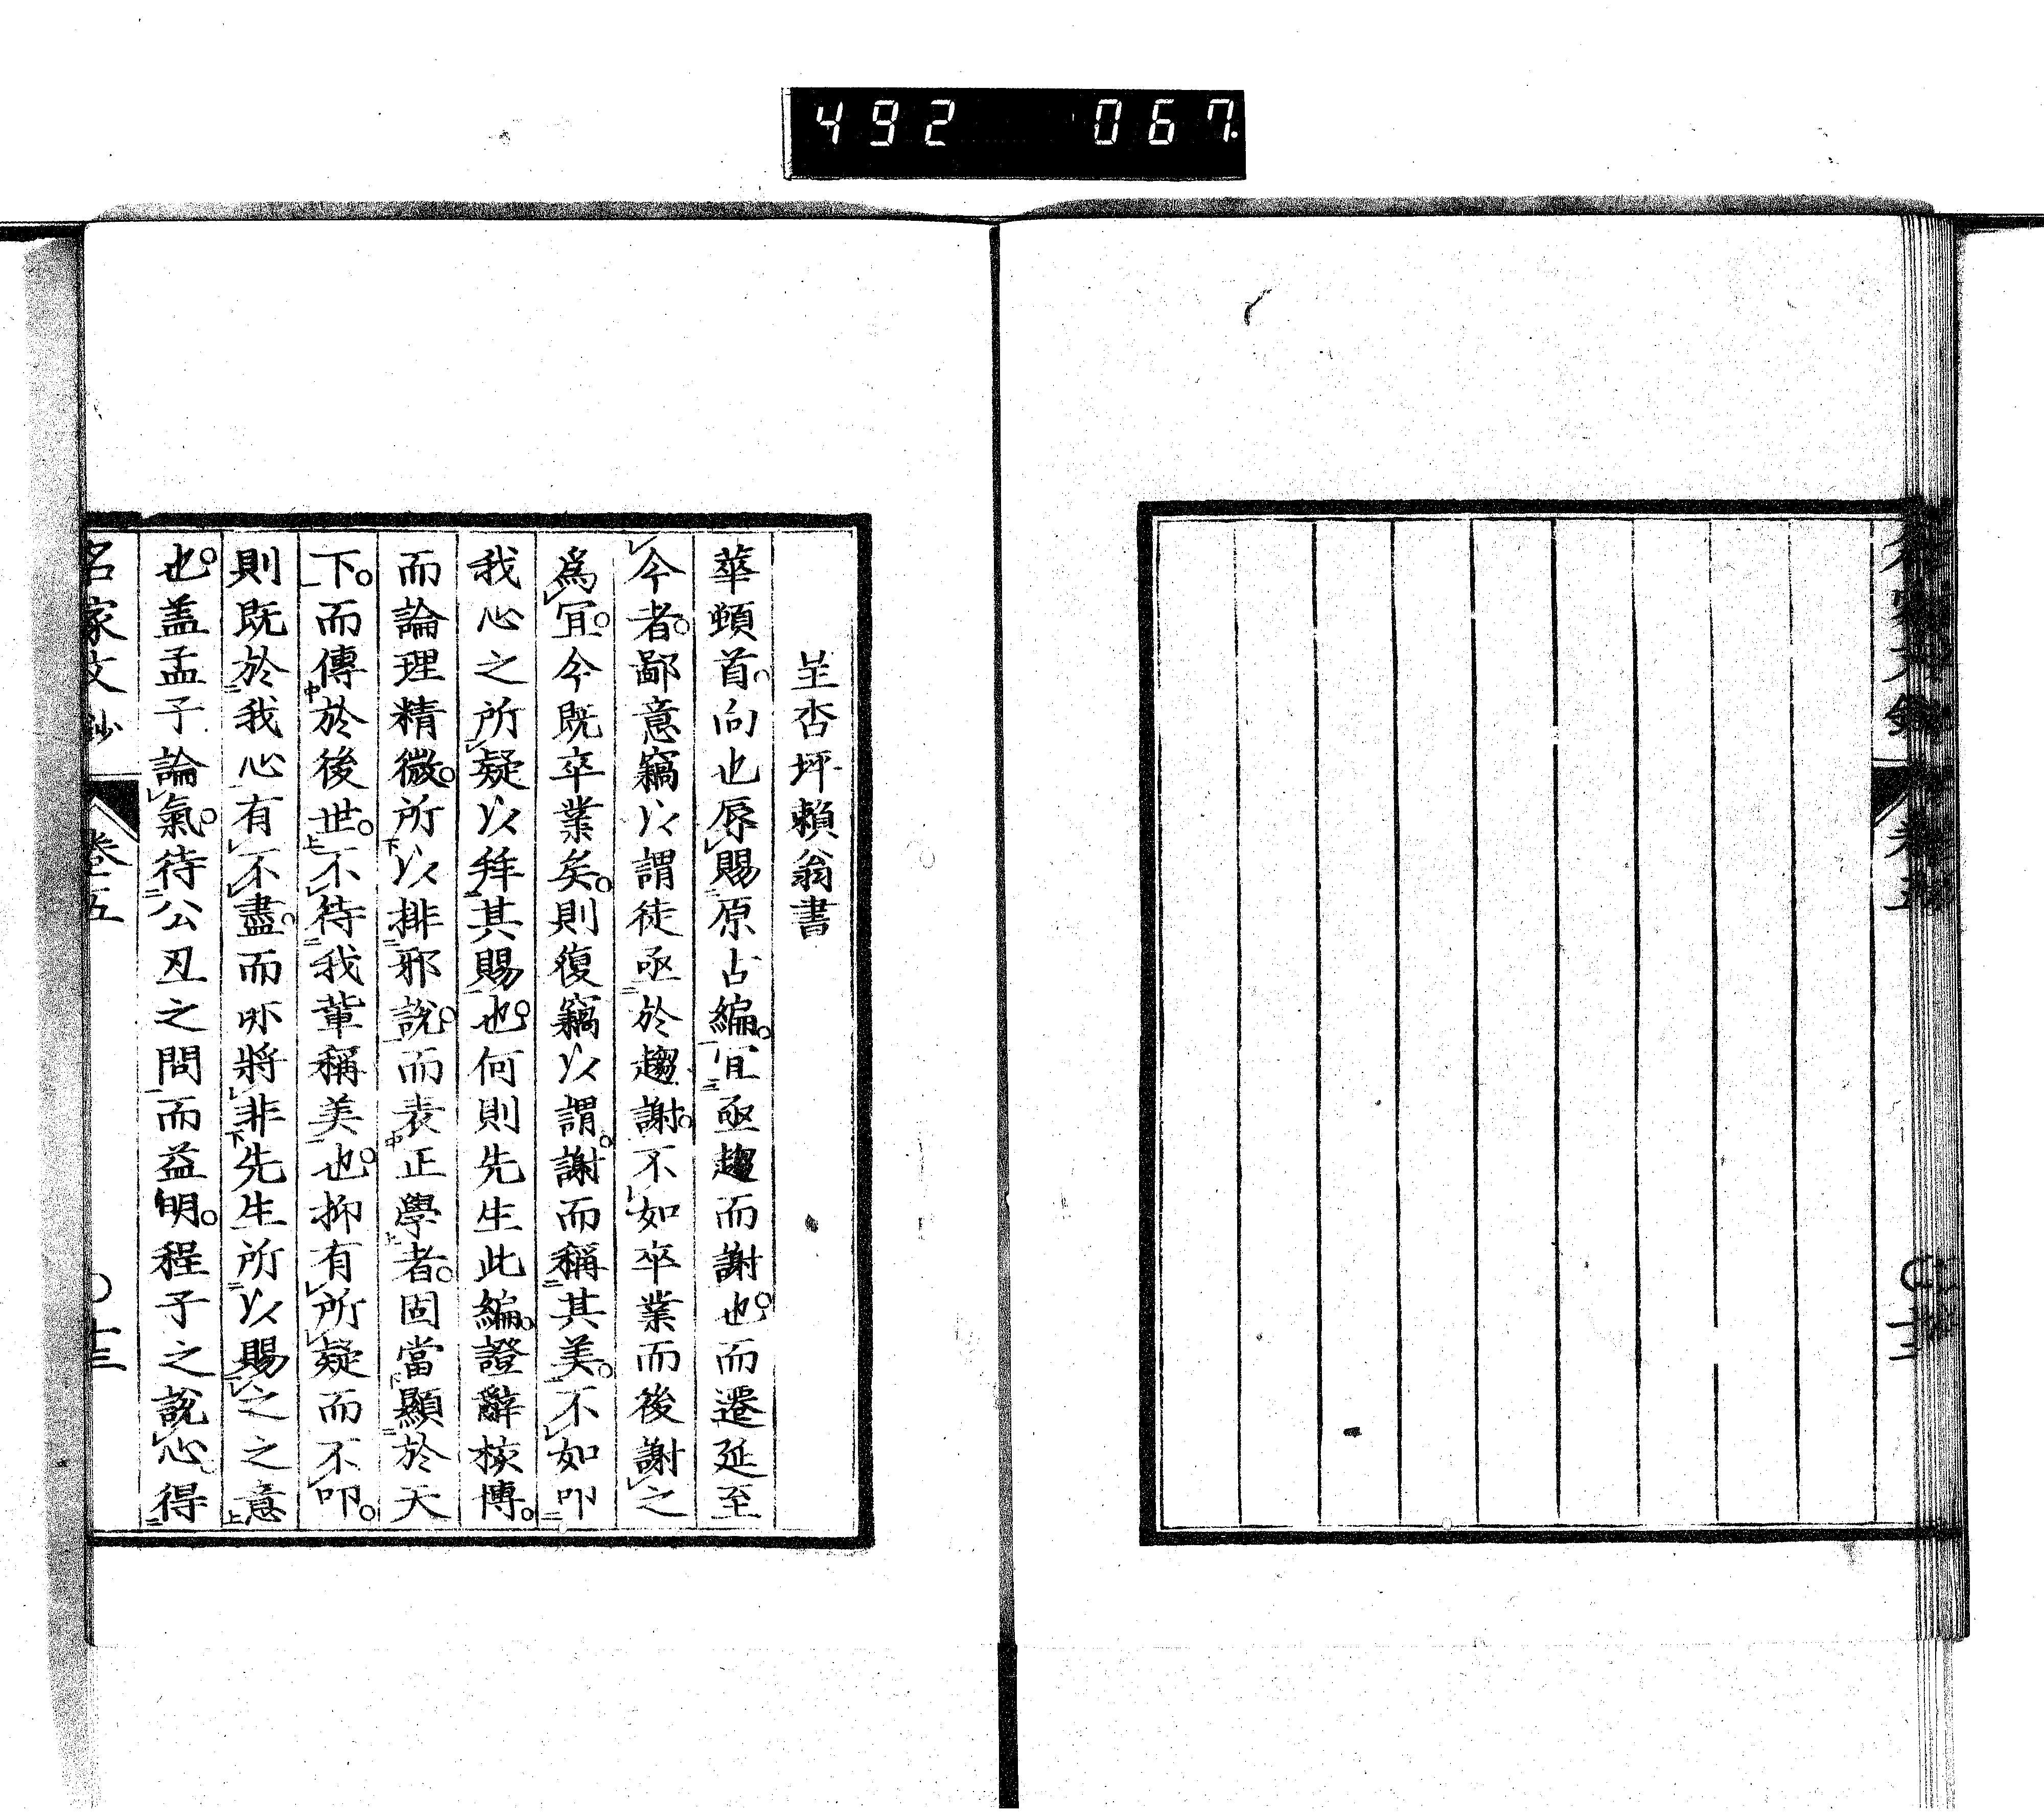 492 067
呈杏坪賴翁書
華頓首向也辱賜原古編宜亟趨而謝也而遷延至
今者鄙意竊以謂徒亟於趨謝不如卒業而後謝之
爲宜今既卒業矣則復竊以謂謝而稱其美不如叩
我心之所疑以拜其賜也何則先生此編證辭核博
而論理精微所以排邪說而表正學者固當顯於天
下而傳於後世不待我輩稱美也抑有所疑而不叩
則既於我心有不盡而亦將非先生所以賜之之意
也盖孟子論氣待公丑之問而益明程子之說心得
名家文鈔 卷五 〇十三